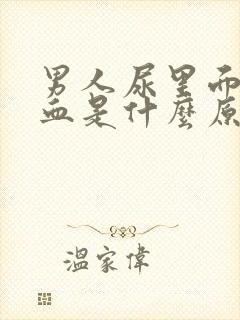 男人尿里而
血是什麼原
温家偉